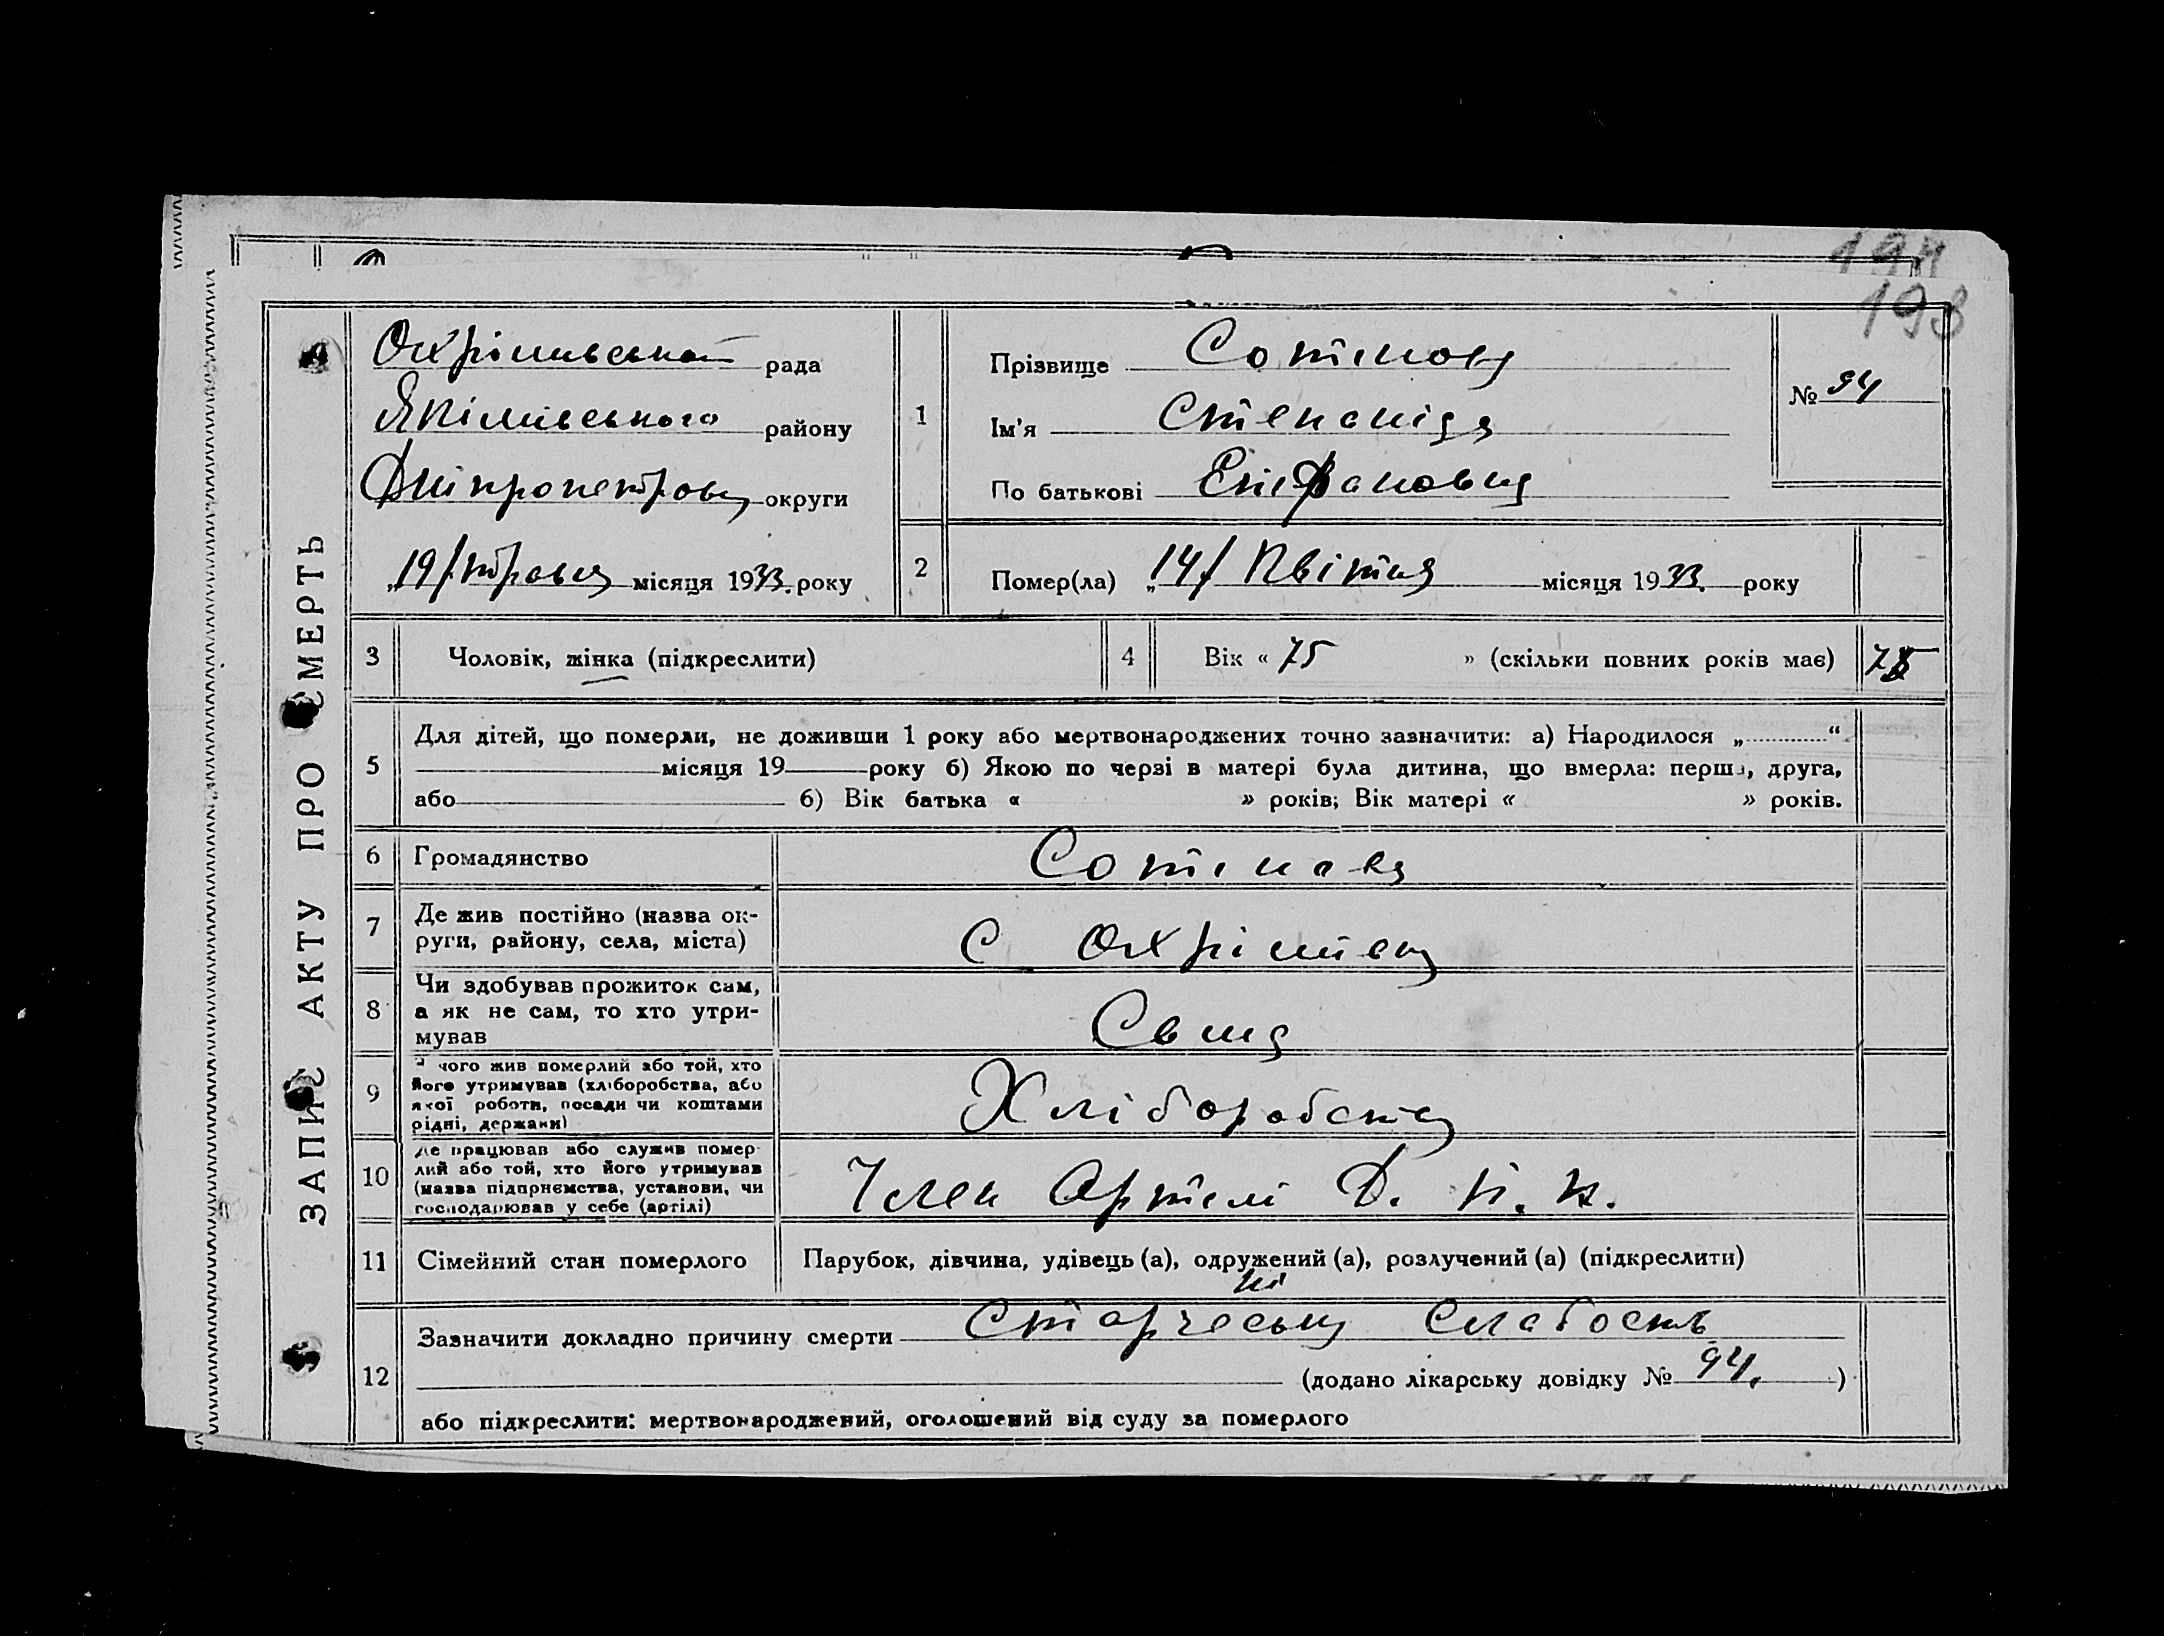 194
193
ЗАПИС АКТУ ПРО СМЕРТЬ
Охрімівська рада
Якімівського району
Дніпропетровськ округи
„19/травня місяця 1933. року
1
Прізвище Сотнікова
Ім'я Степаніда
По батькові Епіфановна
№ 94
2
Помер(ла) „14/ Квітня місяця 1933. року
3 Чоловік, жінка (підкреслити)
4 Вік « 75 » (скільки повних років має) 75
5 Для дітей, що померли, не доживши 1 року або мертвонароджених точно зазначити: а) Народилося „ “
місяця 19 року б) Якою по черзі в матері була дитина, що вмерла: перша, друга,
або б) Вік батька « » років; Вік матері « » років.
6 Громадянство
7 Де жив постійно (назва ок-
руги, району, села, міста) С Охрімівка
8 Чи здобував прожиток сам,
а як не сам, то хто утри-
мував
9 З чого жив померлий або той, хто
його утримував (хліборобства, або
якої роботи, посади чи коштами
рідні, держави) Хліборобства
10 Де працював або служив помер-
лий або той, хто його утримував
(назва підприємства, установи, чи
господарював у себе (артілі) Член Артілі
11 Сімейний стан померлого Парубок, дівчина, удівець (а), одружений (а), розлучений (а) (підкреслити)
ні
12 Зазначити докладно причину смерти Старческая Слабость
(додано лікарську довідку № 94. )
або підкреслити: мертвонароджений, оголошений від суду за померлого